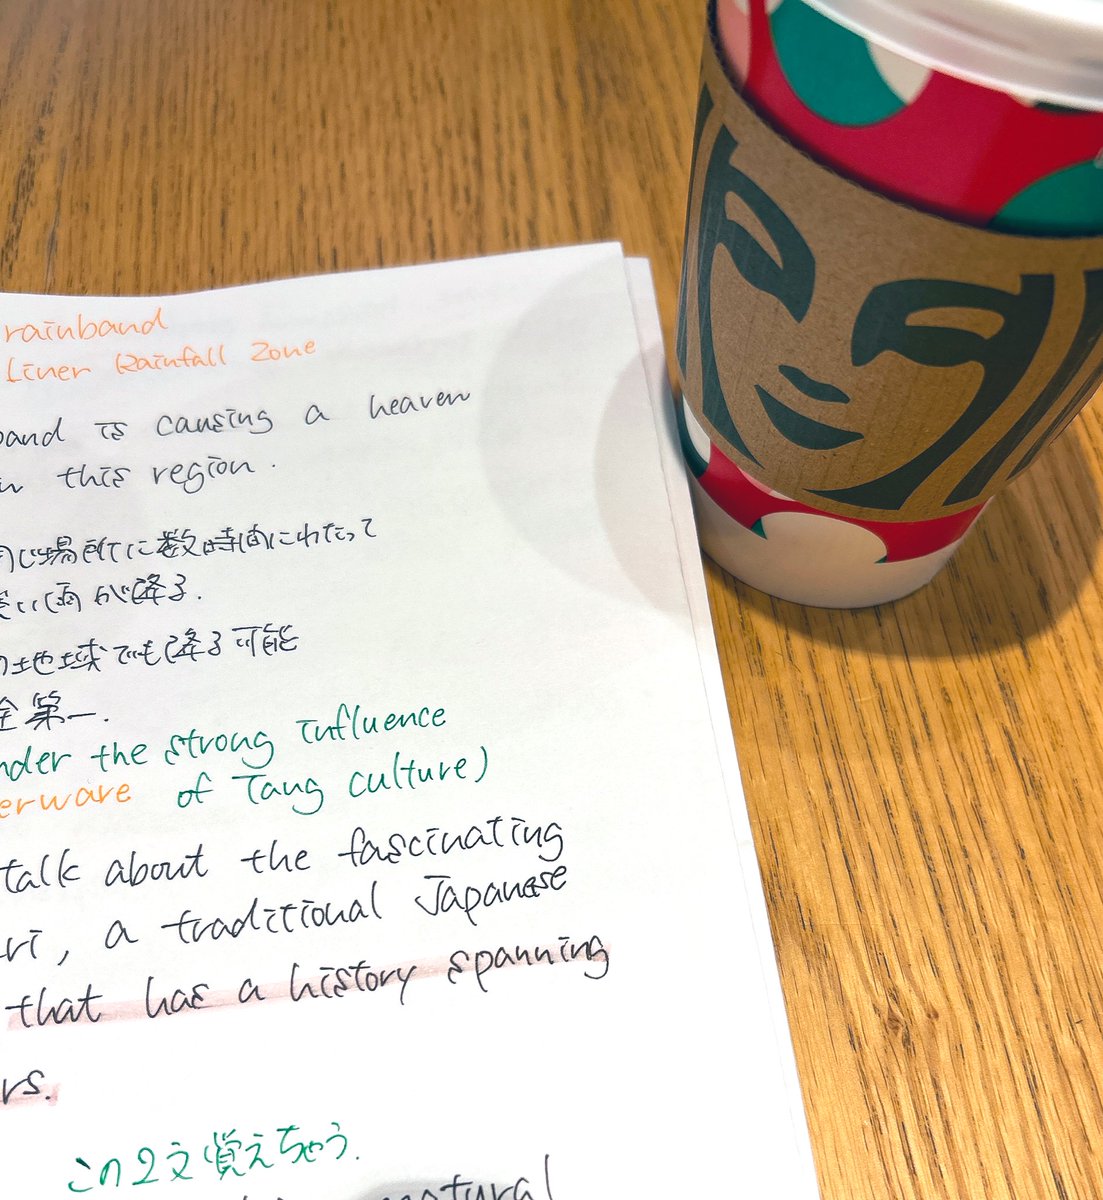 rainband
Liner Rainfall Zone
band is causing a heaven
in this region.
同じ場所に数時間にわたって
強い雨が降る.
の地域でも降る可能
全第一.
nder the strong influence
erware of Tang culture)
talk about the fascinating
ri, a traditional Japanese
that has a history spanning
rs.
この2文覚えちゃう.
natural